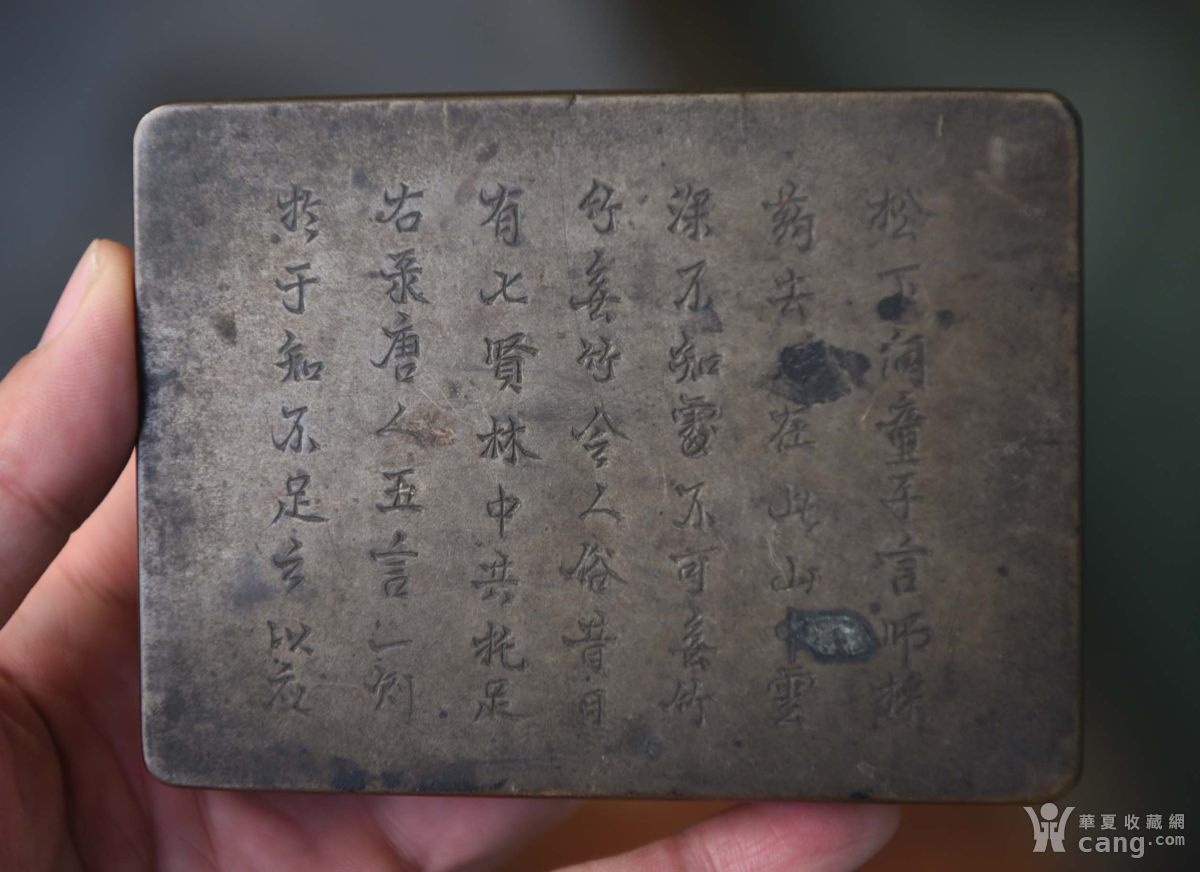 松下问童子言师採
葯去在此山中雲
深不知處不可無竹
竹無竹令人俗昔日
有七賢林中共托足
右录唐人五言一则
於于知不足玄以
華夏收藏網
cang.com